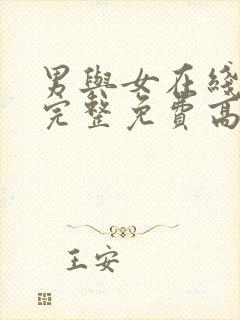 男與女在綫
完整免費高
王安